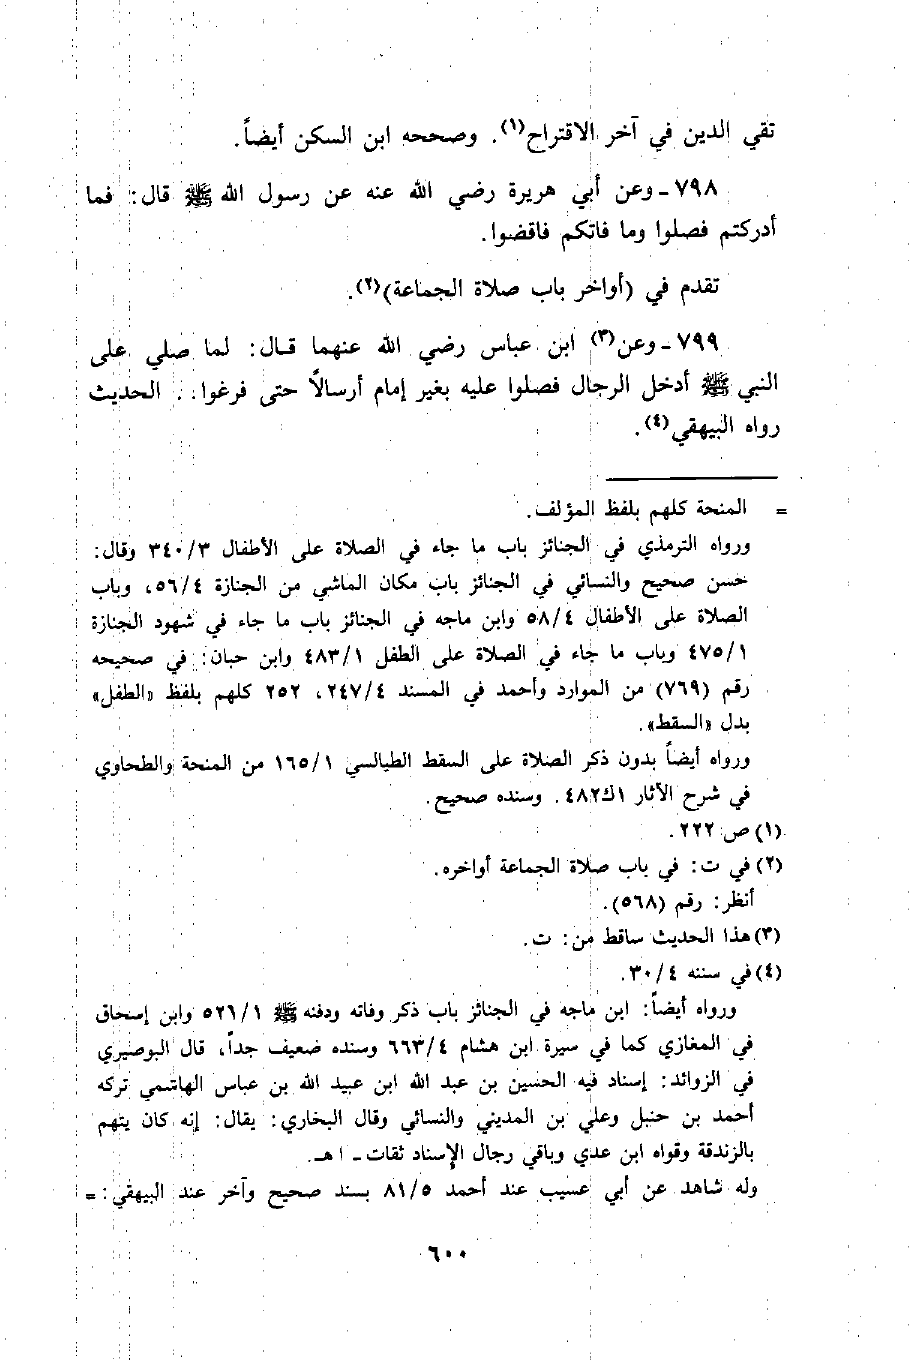 تقي الدين في آخر الاقتراح(١). وصححه ابن السكن أيضاً.
٧٩٨ ـ وعن أبي هريرة رضي الله عنه عن رسول الله ﷺ قال: فما
أدركتم فصلوا وما فاتكم فاقضوا.
تقدم في (أواخر باب صلاة الجماعة)(٢).
٧٩٩ ـ وعن(٣) ابن عباس رضي الله عنهما قال: لما صلي على
النبي ﷺ أدخل الرجال فصلوا عليه بغير إمام أرسالاً حتى فرغوا. . الحديث
رواه البيهقي(٤).
= المنحة كلهم بلفظ المؤلف.
ورواه الترمذي في الجنائز باب ما جاء في الصلاة على الأطفال ٣٤٠/٣ وقال:
حسن صحيح والنسائي في الجنائز باب مكان الماشي من الجنازة ٥٦/٤، وباب
الصلاة على الأطفال ٥٨/٤ وابن ماجه في الجنائز باب ما جاء في شهود الجنازة
٤٧٥/١ وباب ما جاء في الصلاة على الطفل ٤٨٣/١ وابن حبان: في صحيحه
رقم (٧٦٩) من الموارد وأحمد في المسند ٢٤٧/٤، ٢٥٢ كلهم بلفظ «الطفل»
بدل «السقط».
ورواه أيضاً بدون ذكر الصلاة على السقط الطيالسي ١٦٥/١ من المنحة والطحاوي
في شرح الآثار ١ك٤٨٢. وسنده صحيح.
(١) ص ٢٢٢.
(٢) في ت: في باب صلاة الجماعة أواخره.
أنظر: رقم (٥٦٨).
(٣) هذا الحديث ساقط من: ت.
(٤) في سننه ٣٠/٤.
ورواه أيضاً: ابن ماجه في الجنائز باب ذكر وفاته ودفنه ﷺ ٥٢٦/١ وابن إسحاق
في المغازي كما في سيرة ابن هشام ٦٦٣/٤ وسنده ضعيف جداً، قال البوصيري
في الزوائد: إسناد فيه الحسين بن عبد الله ابن عبيد الله بن عباس الهاشمي تركه
أحمد بن حنبل وعلي بن المديني والنسائي وقال البخاري: يقال: إنه كان يتهم
بالزندقة وقواه ابن عدي وباقي رجال الإسناد ثقات ـ ا هـ.
وله شاهد عن أبي عسيب عند أحمد ٨١/٥ بسند صحيح وآخر عند البيهقي: =
٦٠٠